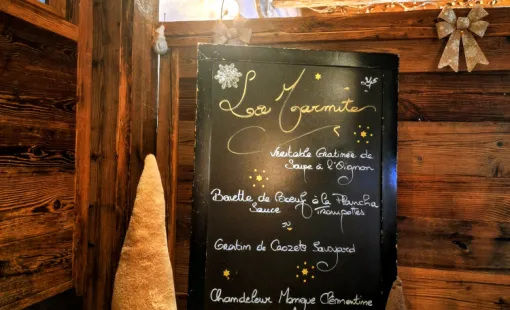 La Marmite
Véritable Gratinée de
Soupe à l'Oignon
Bavette de Boeuf à la Plancha
Sauce Trompettes
Gratin de Crozets Savoyard
Chandeleur Mangue Clémentine